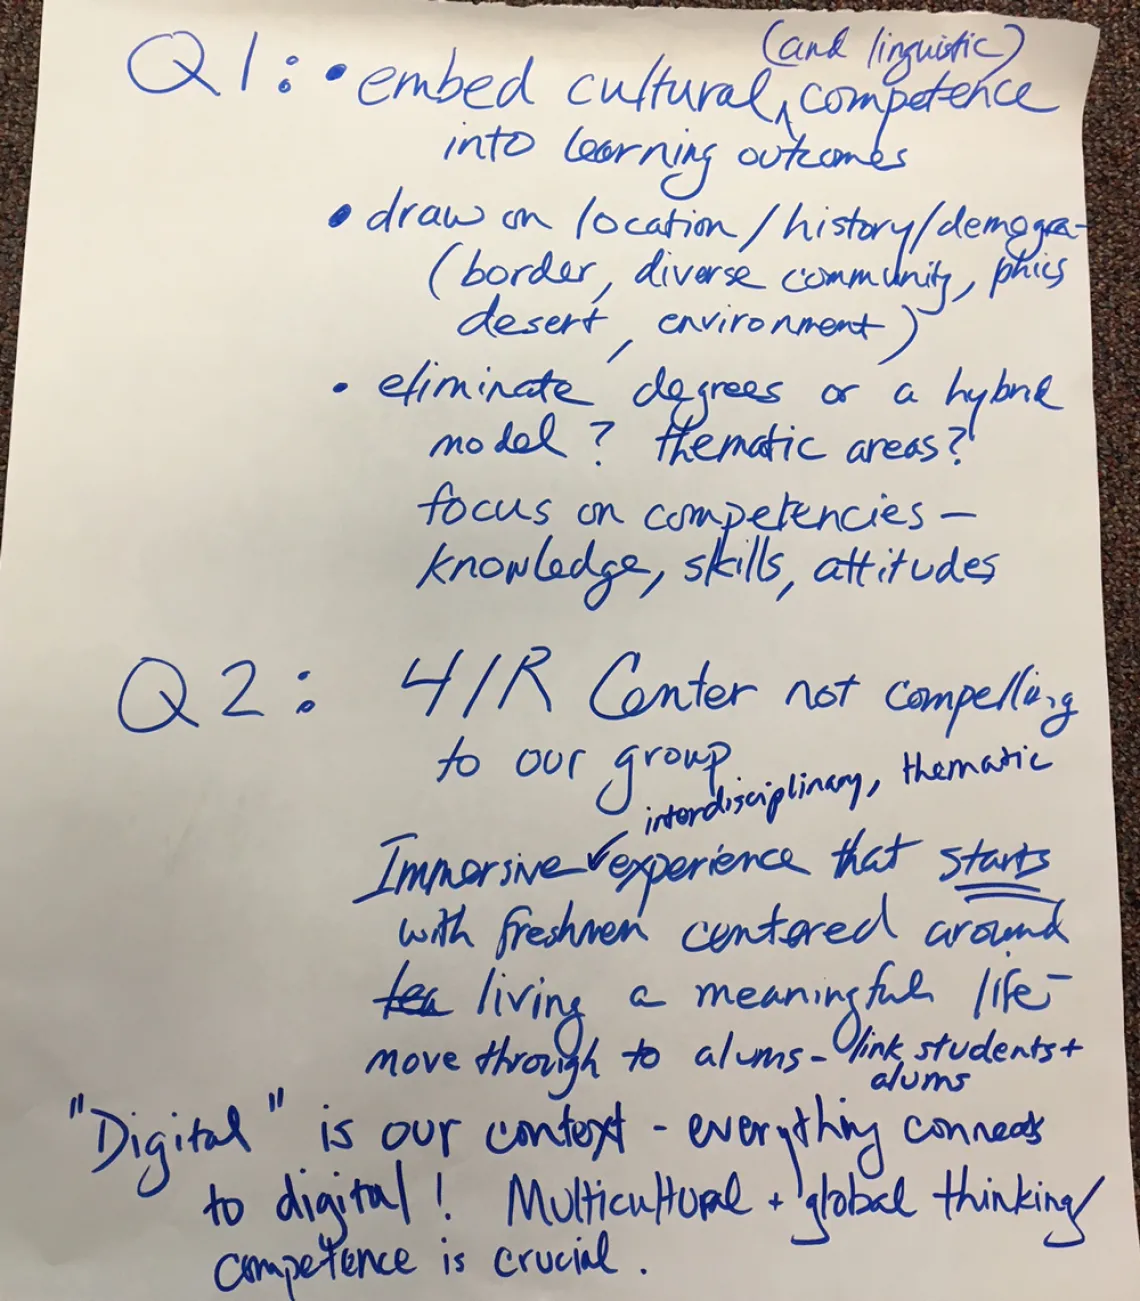 (and linguistic)
Q1: • embed cultural ^ competence
into learning outcomes
• draw on location/history/demogra-
(border, diverse community, phics
desert, environment)
• eliminate degrees or a hybrid
model? thematic areas?
focus on competencies –
knowledge, skills, attitudes
Q2: 4/R Center not compelling
to our group
interdisciplinary, thematic
Immersive experience that starts
with freshmen centered around
tea living a meaningful life –
move through to alums – link students +
alums
"Digital" is our context – everything connects
to digital! Multicultural + global thinking/
competence is crucial.